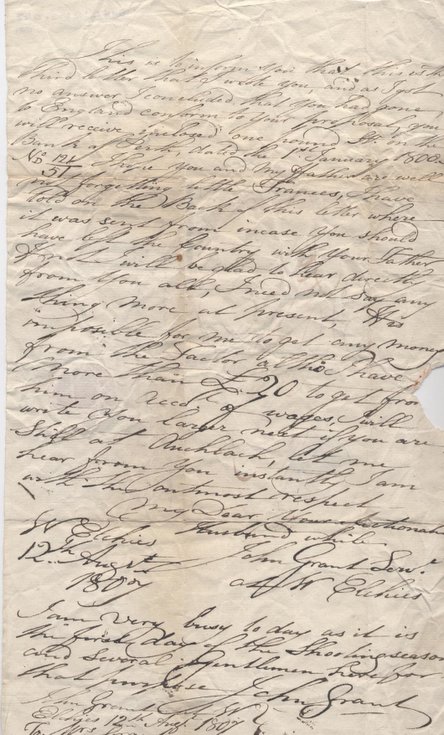 This is to inform you that this is the
Third letter that I wrote you, and as I got
no answer I concluded that you had gone
to England conform to your proposal, you
will receive inclosed one pound Str. on the
Bank of Perth, dated the 1st January 1800
No. 124 I hope you and my Father are well
not forgetting little Frances, I have
told on the Back of this letter where
it was sent from incase you should
have left the Country with your Father
I will be glad to hear directly
from you all, I need not say any
thing more at present, It is
impossible for me to get any money
from the Factor altho I have
more than £20 to get from
him on acct. of wages, I will
write you larger next if you are
still at Auchlach, let me
hear from you instantly, I am
with the outmost respect
My Dear your affectionate
Husband while
W Elchies John Grant Serv.
12th Augst. at W Elchies
1807
I am very busy to day as it is
the first day of the Shooting season
and several Gentlemen here for
that purpose John Grant
John Grant
Elchies 12th Augt. 1807
To Mrs